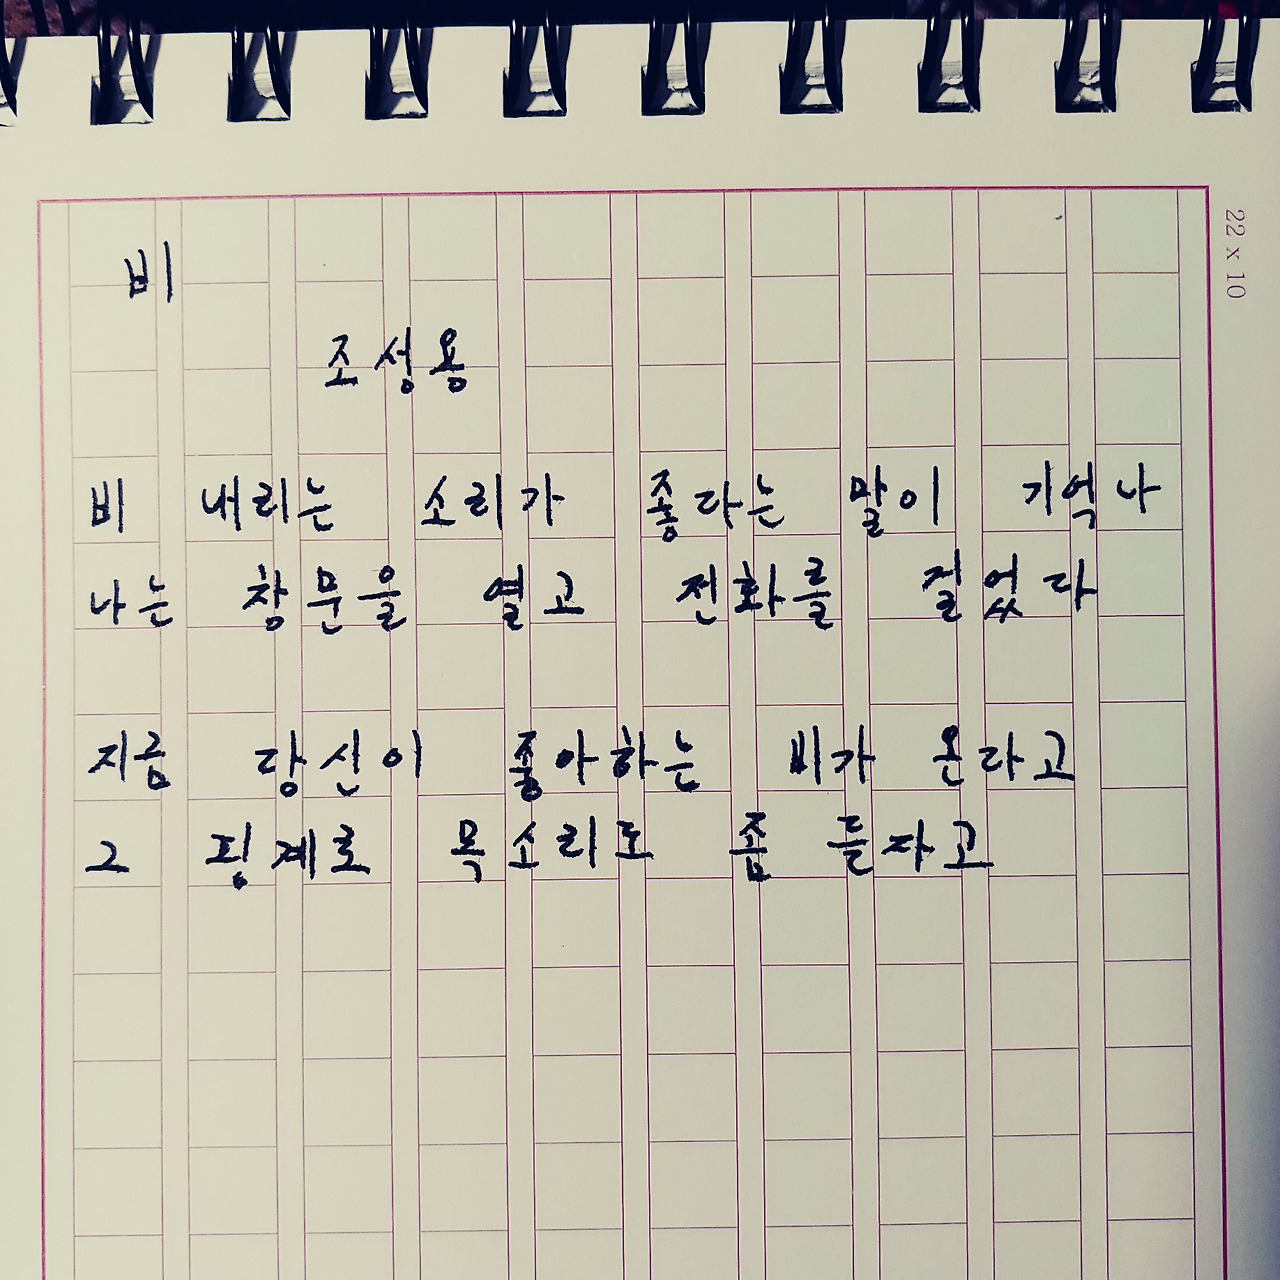 22 x 10
비
조성용
비 내리는 소리가 좋다는 말이 기억나
나는 창문을 열고 전화를 걸었다
지금 당신이 좋아하는 비가 온라고
그 핑계로 목소리도 좀 듣자고